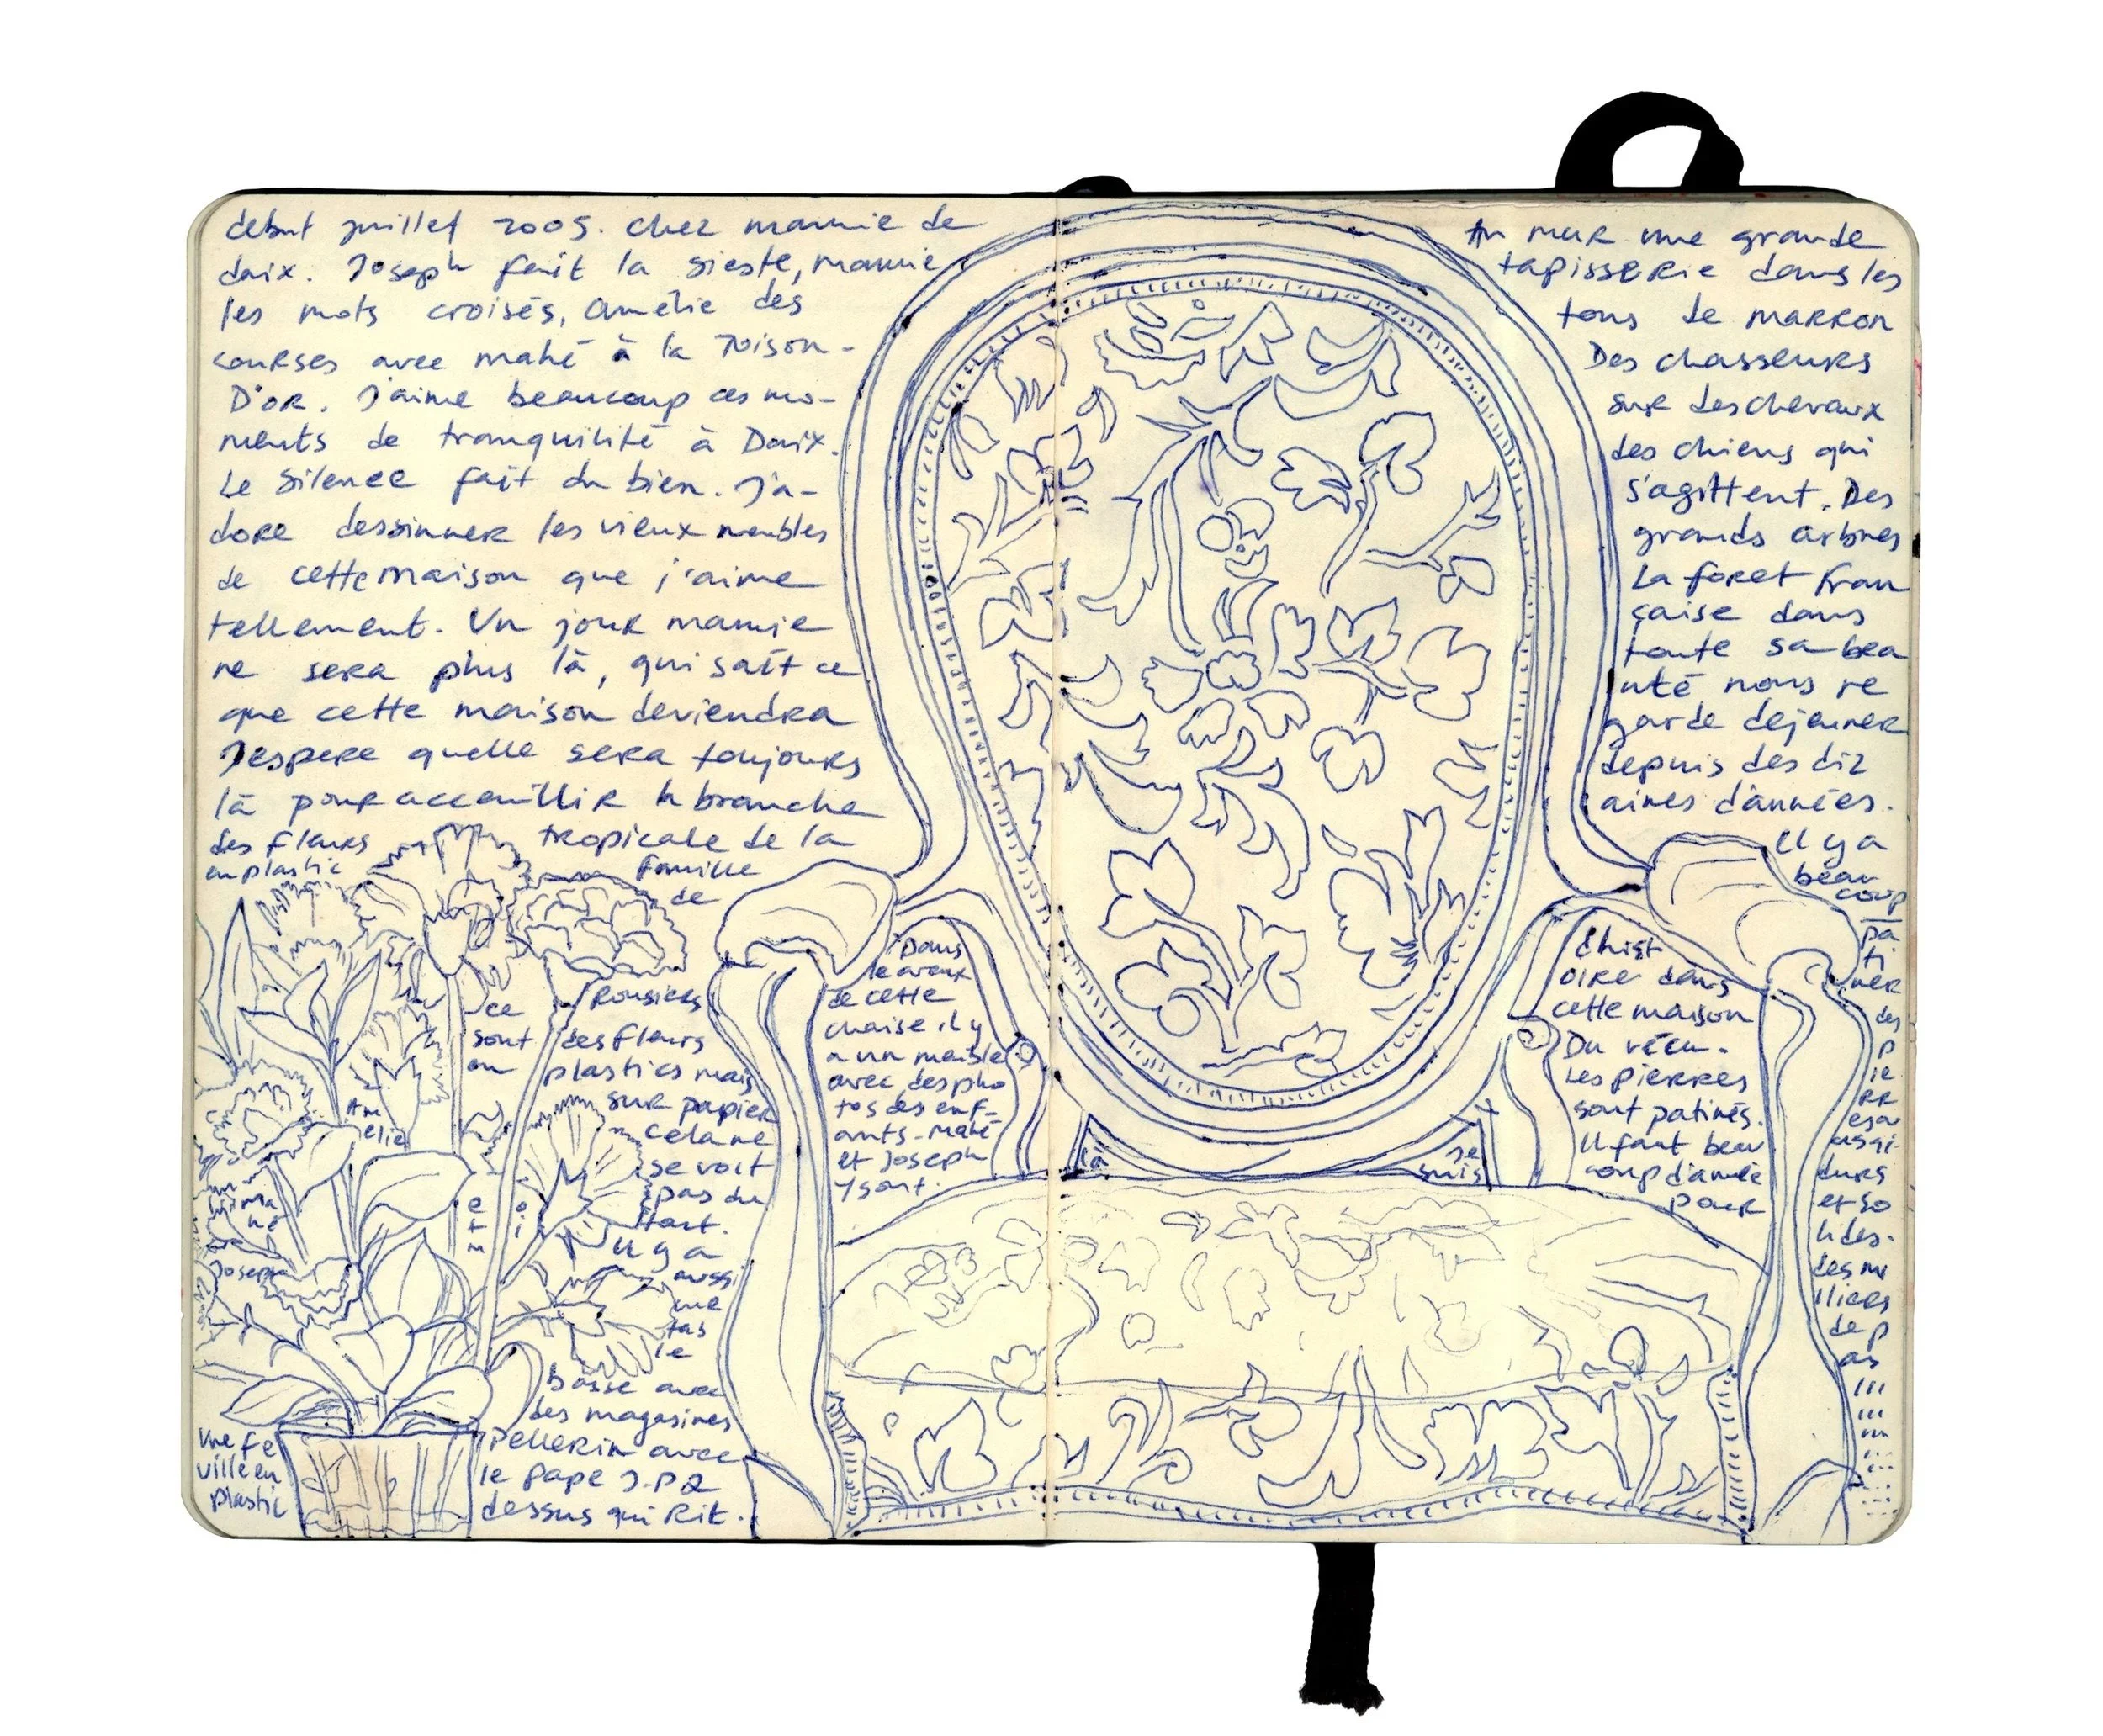 debut juillet 2005. chez mamie de
daix. Joseph fait la sieste, mamie
les mots croisés, amélie des
courses avec mahé à la Toison-
D'or. J'aime beaucoup ces mo-
ments de tranquilité à Daix.
Le silence fait du bien. J'a-
dore dessinner les vieux meubles
de cette maison que j'aime
tellement. Un jour mamie
ne sera plus là, qui sait ce
que cette maison deviendra
J'espere quelle sera toujours
là pour accceuillir la branche
tropicale de la
famille
de
des fleurs
en plastic
ce
sont
ou
Rousiers
des fleurs
plastics mais
sur papier
cela ne
se voit
pas du
tout.
Il y a
aussi
une
tas
le
basse avec
des magasines
Pellerin avec
le pape J.P2
dessus qui Rit.
Am
élie
ma
hé
Joseph
et m
oi
une fe
uille en
plastic
Dans
le creux
de cette
chaise, il y
a un meuble
avec des pho
tos des enf-
ants. Mahé
et Joseph
y sont.
là
je
suis
Au mur une grande
tapisserie dans les
tons de marron
Des chasseurs
sur des chevaux
des chiens qui
s'agittent. Des
grands arbres
La foret fran
çaise dans
toute sa bea
uté nous re
garde dejeuner
depuis des diz
aines d'années.
Il y a
beau
coup
d'hist
oire dans
cette maison
Du vécu.
Les pierres
sont patinés.
Il faut beau
coup d'année
pour
pa
ti
ner
des
p
ie
rr
es au
ssi
durs
et so
lides.
des mi
lliers
de p
as